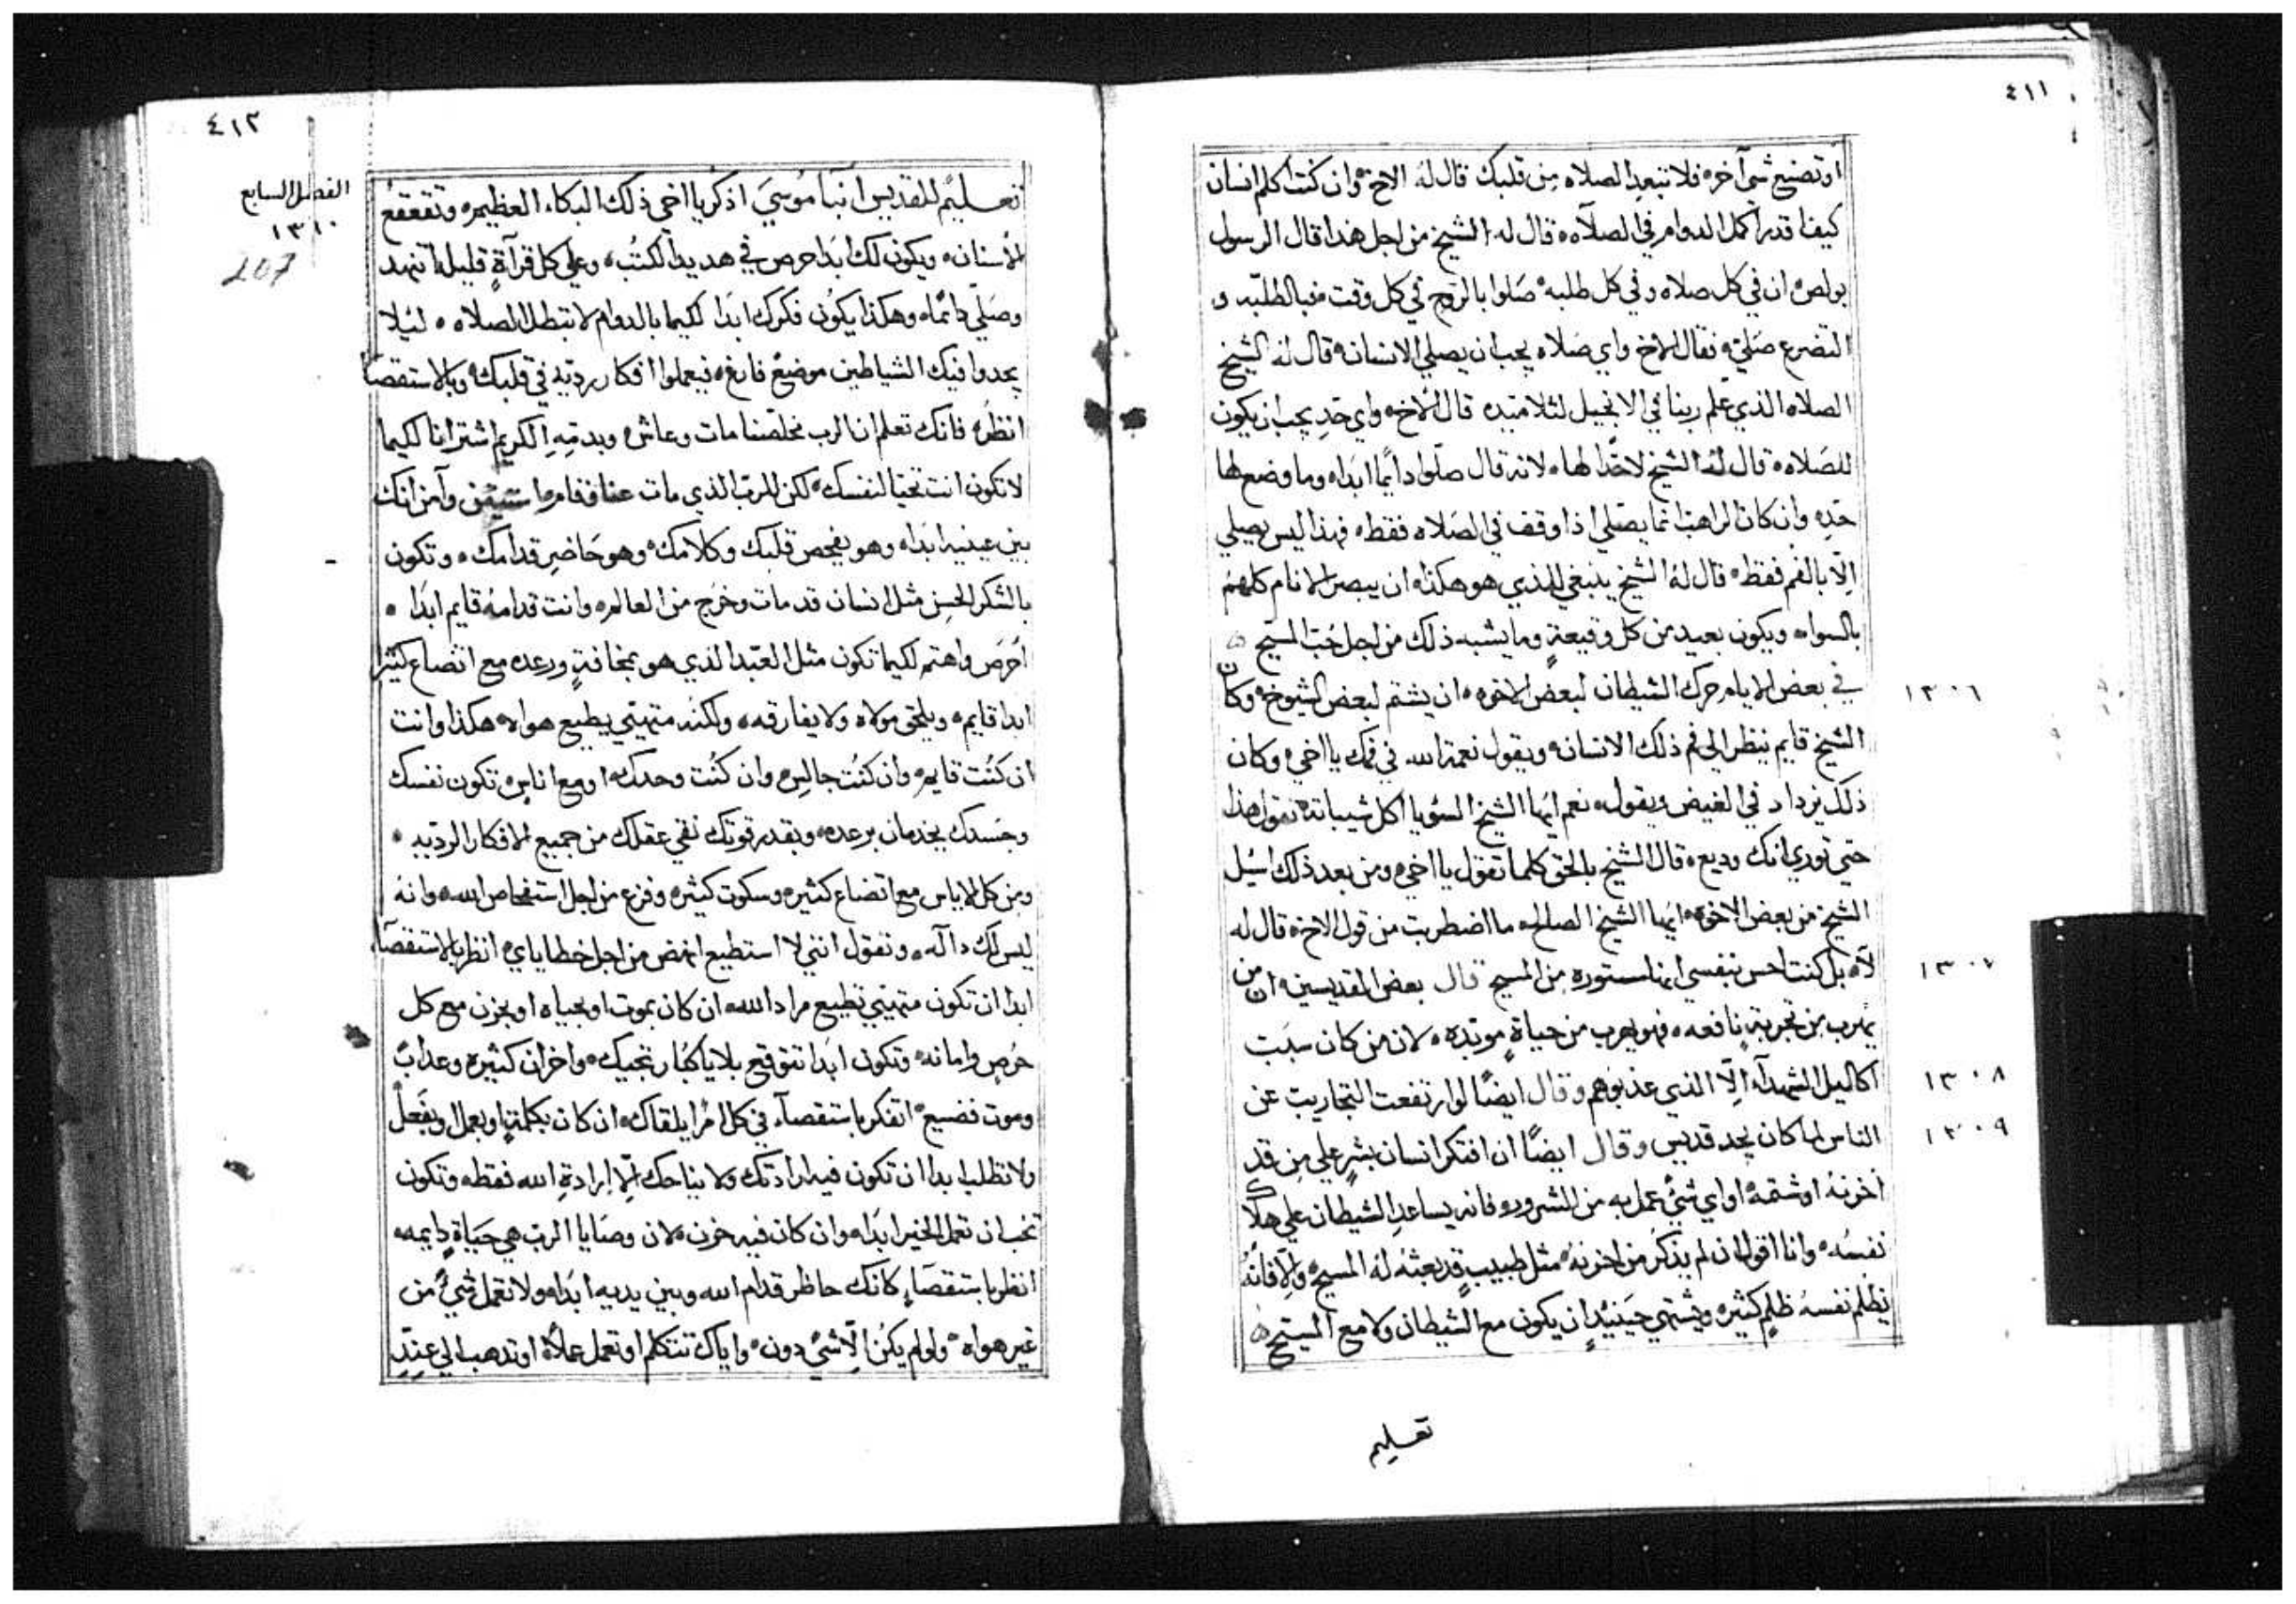 ٤١١
اوتصنع شي آخر ه فلا تبعد الصلاه من قلبك قال له الاخ ه وان كنت اكلم انسان
كيف اقدر اكمل الدوام في الصلاه ه قال له الشيخ من اجل هذا قال الرسول
بولص ه ان في كل صلاه وفي كل طلبه ه صلوا بالروح في كل وقت ه فبالطلبه و
التضرع صلي ه فقال الاخ واي صلاه يجب ان يصلي الانسان ه قال له الشيخ
الصلاه الذي علم ربنا في الانجيل لتلاميده قال الاخ ه واي حد يجب ان يكون
للصلاه ه قال له الشيخ لا حد لها ه لانه قال صلوا دايمًا ابدا ه وما وضع لها
حد ه وان كان الراهب انما يصلي اذا وقف في الصلاه فقط ه فهذا ليس يصلي
الا بالفم فقط ه قال له الشيخ ينبغي للذي هو هكذا ه ان يبصر الانام كلهم
بالسوا ه ويكون بعيد من كل وقيعة وما يشبه ذلك من اجل حب المسيح ه
١٣٠٦ في بعض الايام حرك الشيطان لبعض الاخوه ه ان يشتم لبعض الشيوخ ه وكان
الشيخ قايم ينظر الي فم ذلك الانسان ه ويقول نعمة الله في فمك يا اخي ه وكان
ذلك يزداد في الغيض ويقول ه نعم ايها الشيخ السؤ يا اكل شيباته تقول هذا
حتي توري انك وديع ه قال الشيخ بالحق كلما تقول يا اخي ه ومن بعد ذلك اسيل
الشيخ من بعض الاخوه ه ايها الشيخ الصالح ه ما اضطربت من قول الاخ ه قال له
١٣٠٧ لا ه بل كنت احس بنفسي انها مستوره من المسيح قال بعض القديسين ه ان من
يهرب من تجربة نافعه ه فهو يهرب من حياة موبده ه لان من كان سبب
١٣٠٨ اكاليل الشهدا ه الا الذي عذبوهم وقال ايضًا لو ارتفعت التجاريب عن
١٣٠٩ الناس لما كان يجد قديس وقال ايضًا ان افتكر انسان بشر علي من قد
اخزنه او شتمه او اي شي عمل به من الشرور ه فانه يساعد الشيطان علي هلاك
نفسه ه وانا اقول ان لم يذكر من احزنه ه مثل طبيب قد بعثه له المسيح ه والا فانه
يظلم نفسه ظلم كثير ه ويشتهي حينيد ان يكون مع الشيطان ولا مع المسيح ه
تعليم
٤١٢
الفصل السابع
١٣١٠
207
تعليم للقديس انبا موسي اذكر يا اخي ذلك البكاء العظيم ه وتقعقع
الاسنان ه ويكون لك ابدا حرص في هديد الكتب ه وعلي كل قرآة قليلا تنهد
وصلي دائمًا ه وهكذا يكون فكرك ابدا لكيما بالدوام لا تبطل الصلاه ه ليلا
يجدوا فيك الشياطين موضع فارغ ه فيعملوا افكار رديه في قلبك ه وبالاستقصا
انظر ه فانك تعلم ان الرب مخلصنا مات وعاش ه وبدمه الكريم اشترانا لكيما
لا تكون انت تحيا لنفسك ه لكن للرب الذي مات عنا فقام وآمن انك
بين عينيه ابدا ه وهو يفحص قلبك وكلامك ه وهو حاضر قدامك ه وتكون
بالشكر الحسن مثل انسان قد مات وخرج من العالم ه وانت قدامه قايم ابدا ه
احرص واهتم لكيما تكون مثل العبد الذي هو بمخافة ورعده مع اتضاع كثير
ابدا قايم ه ويلحق مولاه ولا يفارقه ه ولكنه متهيي يطيع هواه ه هكذا وانت
ان كنت قايم ه وان كنت جالس ه وان كنت وحدك ه او مع اناس ه تكون نفسك
وجسدك يخدمان برعده ه وبقدر قوتك نقي عقلك من جميع الافكار الرديه ه
ومن كل الاياس مع اتضاع كثير ه وسكوت كثير ه وفزع من اجل استفحاص الله ه وانه
ليس لك داله ه وتقول انني لا استطيع انهض من اجل خطاياي ه انظر بالاستقصآ
ابدا ان تكون متهيي تطيع مراد الله ه ان كان بموت او بحياه او بحزن مع كل
حرص وامانه ه وتكون ابدا تتوقع بلايا كبار تجيك ه واحزان كثيره وعذاب
وموت فضيع ه اتفكر باستقصآ في كل امر ايلقاك ه ان كان بكلمة او بعمل او بفعل
ولا تطلب ابدا ان تكون فيه ارادتك ولا بناحك الا ارادة الله فقط ه وتكون
تحب ان تعمل الخير ابدا ه وان كان فيه حزن ه لان وصايا الرب هي حياة دايمه ه
انظر باستقصاء كانك حاظر قدام الله وبين يديه ابدا ه ولا تعمل شي من
غير هواه ه ولو لم يكن الا شي دون ه واياك تتكلم او تعمل عملا ه او تدهب الي عند